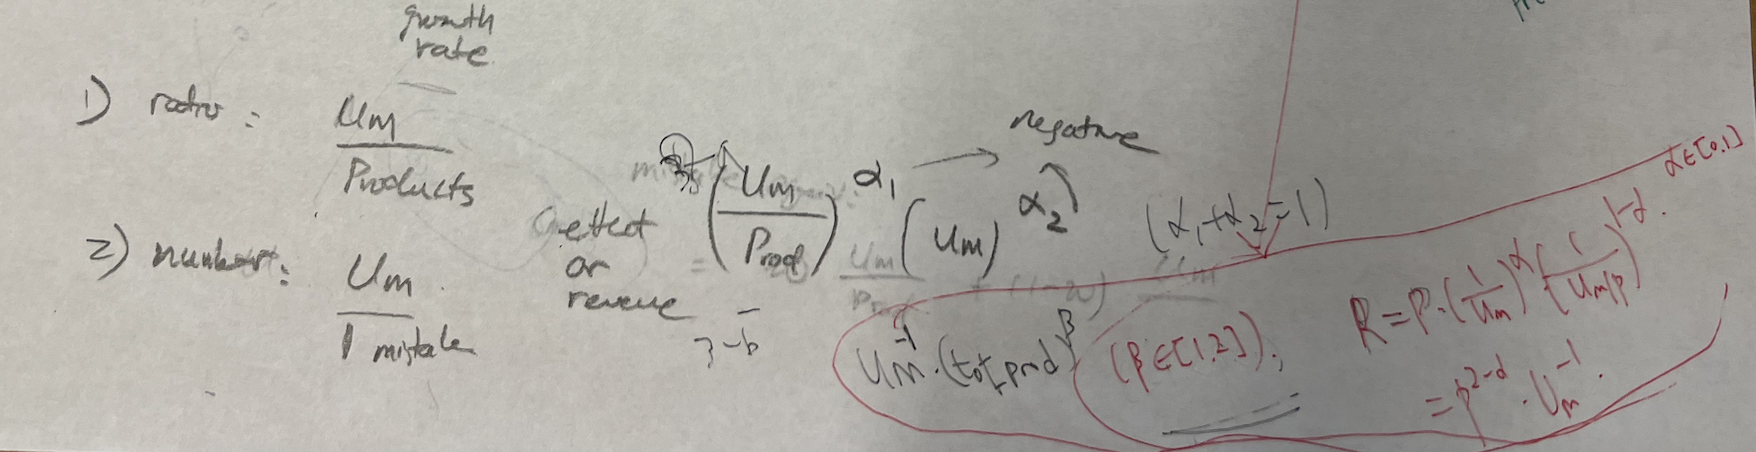 growth
rate
1) ratio : Um / Products
2) number : Um / 1 mistake
effect
or
revenue
(Um / Prod)^α₁ (Um)^α₂ (α₁+α₂=1)
→ negative
Um⁻¹ · (tot prod)^β (β∈[1,2]),
α∈[0,1]
R = P · (1/Um)^α (1/(Um/P))^(1-α).
= P^(2-α) · Um⁻¹.